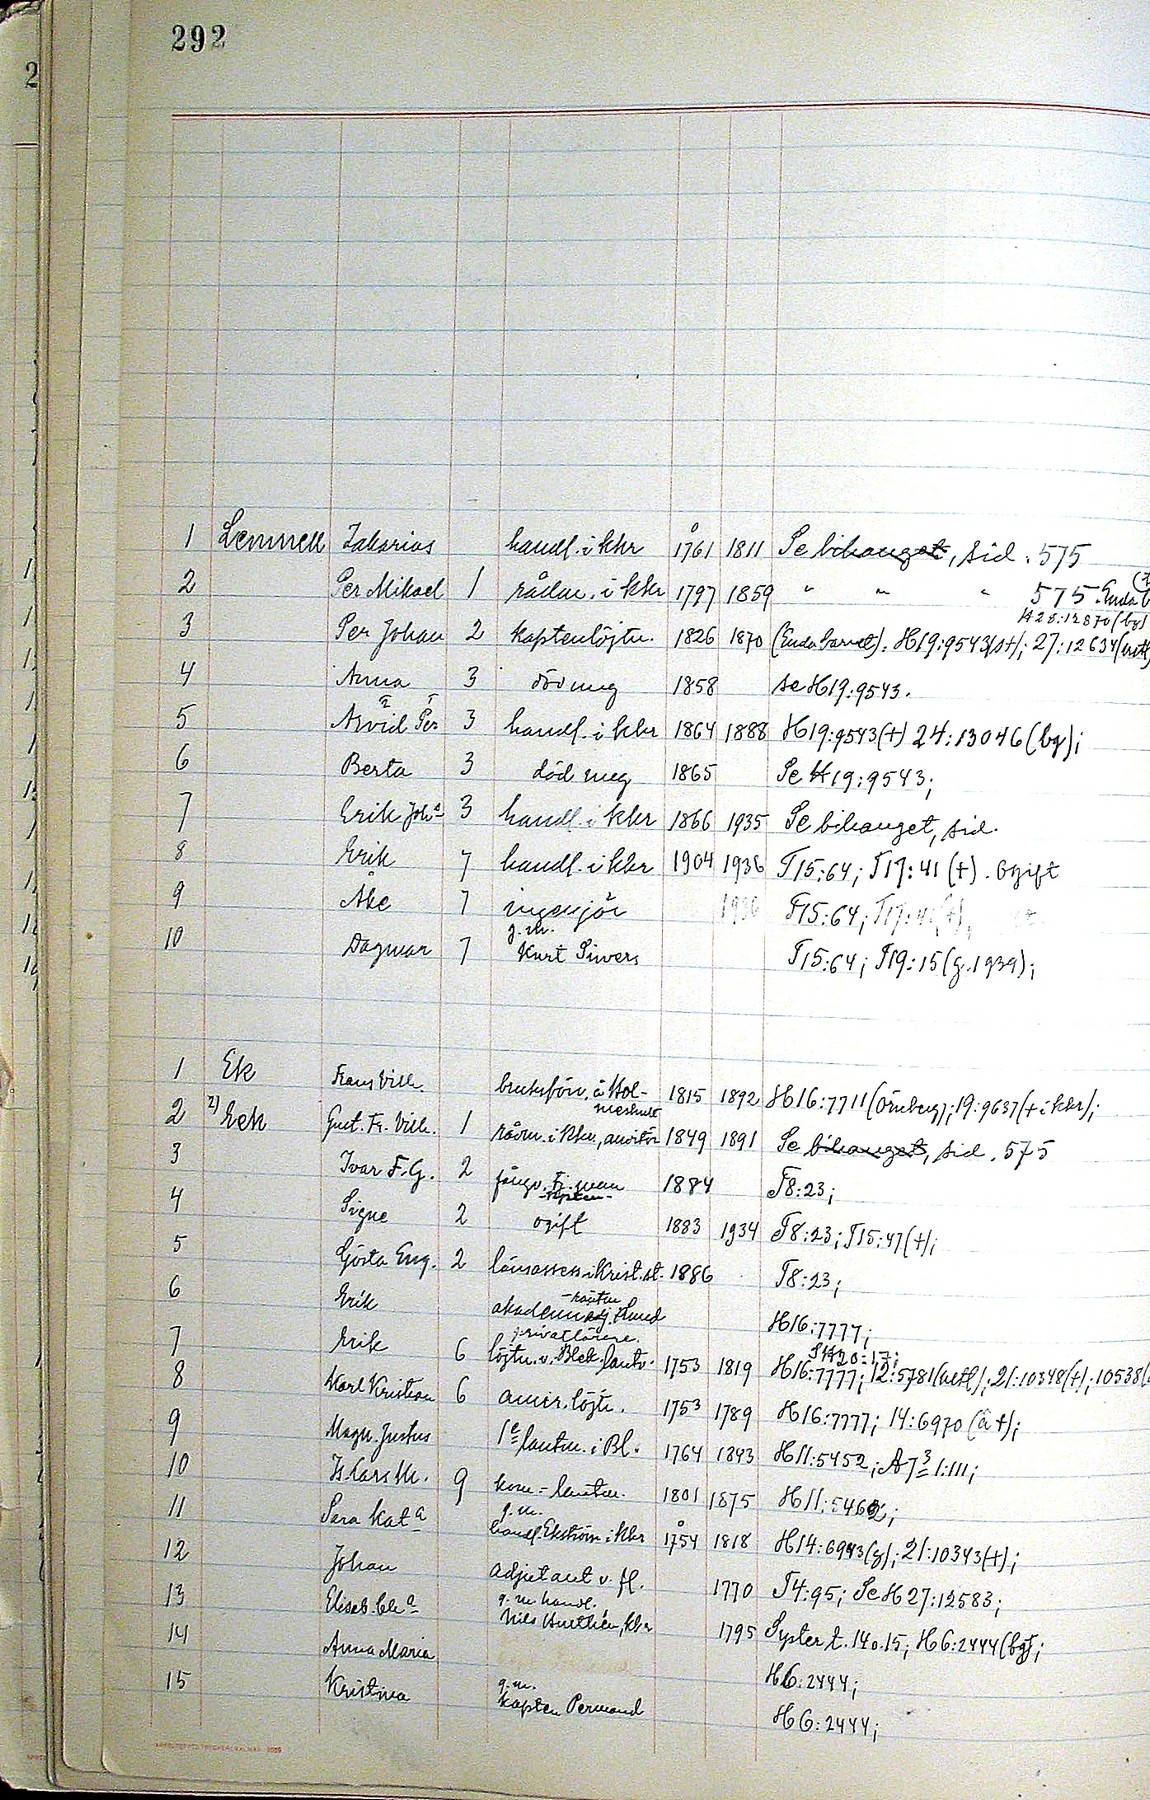 292
1 Lemnell Zakarias handl. i kkr 1761 1811 Se bihanget, sid. 575
2 Per Mikael 1 rådm. i kkr 1797 1859 " " " 575. Enda
H28:12870 (bg)
3 Per Johan 2 kaptenlöjtn. 1826 1870 (Enda barnet). H19:9543(st); 27:12634
4 Anna 3 död ung 1858 se H19:9543.
5 Arvid Per 3 handl. i kkr 1864 1888 H19:9543(+) 24:13046 (bg);
6 Berta 3 död ung 1865 Se H19:9543;
7 Erik Joh:s 3 handl. i kkr 1866 1935 Se bihanget, sid.
8 Erik 7 handl. i kkr 1904 1936 T15:64; T17:41 (+). Ogift
9 Åke 7 ingenjör 1936 T15:64;
g.m.
10 Dagmar 7 Kurt Sivers T15:64; T19:15 (g.1939);
1 Ek Frans Vilh. bruksförv. å Hol- 1815 1892 H16:7711 (Öneberg); 19:9637 (+ i kkr);
2 2) Eek Gust. Fr. Vilh. 1 rådm. i kkr, auditör 1849 1891 Se bihanget, sid. 575
3 Ivar F.G. 2 1884 T8:23;
4 Signe 2 ogift 1883 1934 T8:23; T15:47(+);
5 Gösta Eug. 2 länsassess. i Krist.st. 1886 T8:23;
6 Erik H16:7777;
privatlärare.
7 Erik 6 löjtn. v. Blek. lantv. 1753 1819 H16:7777; 12:5781 21:10348(+); 10538
8 Karl Kristian 6 amir. löjtn. 1753 1789 H16:7777; 14:6970 (å +);
9 Magn. Justus 1e lantm. i Bl. 1764 1843 H11:5452; A7 3 1:111;
10 9 kom. lantm. 1801 1875 H11:5462;
g.m.
11 Sara Kat:a handl. Ekström i kkr 1754 1818 H14:6943(g); 21:10343(+);
12 Johan adjutant v. fl. 1770 T4:95; Se H27:12583;
g.m. handl.
13 Elisab. Chr:a Nils kkr 1795 Syster t. 14 o. 15; H6:2444 (bg);
14 Anna Maria H6:2444;
g.m.
15 Kristina kapten Permand H6:2444;